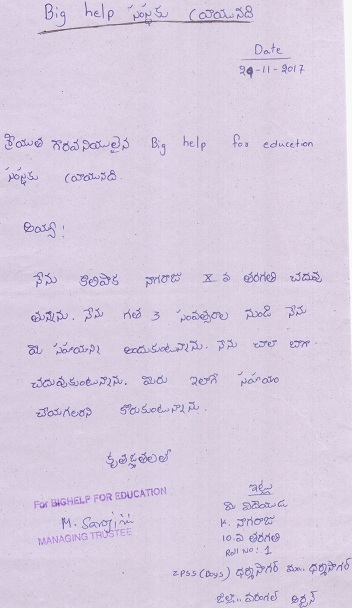 Big help సంస్థకు వ్రాయునది
Date
29-11-2017
శ్రీయుత గౌరవనియులైన Big help for education
సంస్థకు వ్రాయునది.
అయ్యా!
నేను కలిపాక నాగరాజు X వ తరగతి చదువు
తున్నాను. నేను గత 3 సంవత్సరాల నుండి నేను
మీ సహాయాన్ని అందుకుంటున్నాను. నేను చాలా బాగా
చదువుకుంటున్నాను. మీరు ఇలాగే సహాయం
చేయగలరని కోరుకుంటున్నాను.
కృతజ్ఞతలతో
For BIGHELP FOR EDUCATION
M. Sarojini
MANAGING TRUSTEE
ఇట్లు
మీ విధేయుడు
K. నాగరాజు
10 వ తరగతి
Roll No: 1
ZPSS (Boys) ధర్మసాగర్ మం.. ధర్మసాగర్
జిల్లా.. వరంగల్ అర్బన్